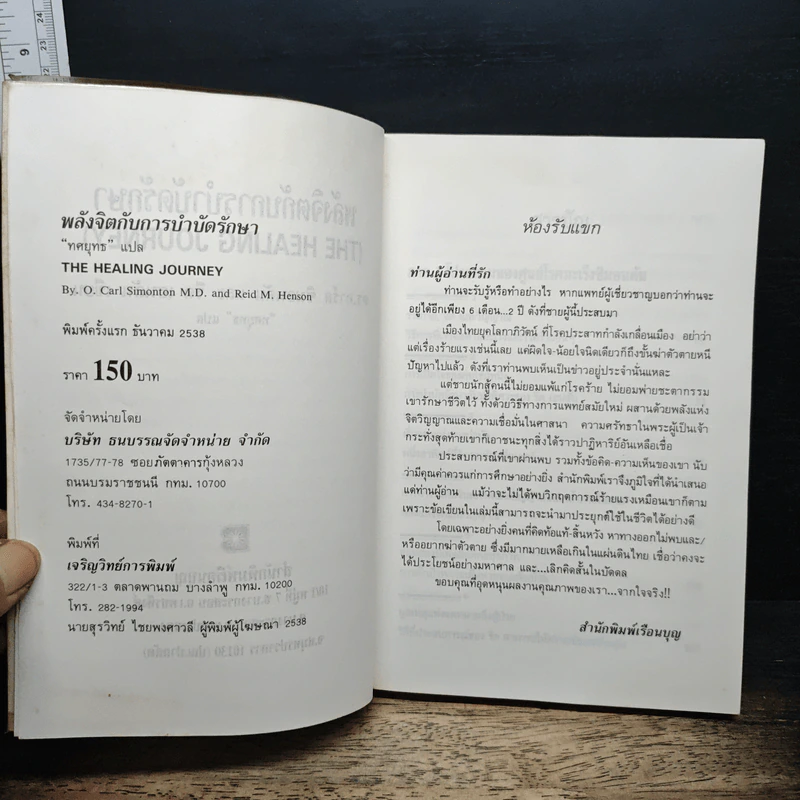 24
23
22
9
พลังจิตกับการบำบัดรักษา
"ทศยุทธ" แปล
THE HEALING JOURNEY
By. O. Carl Simonton M.D. and Reid M. Henson
พิมพ์ครั้งแรก ธันวาคม 2538
ราคา 150 บาท
จัดจำหน่ายโดย
บริษัท ธนบรรณจัดจำหน่าย จำกัด
1735/77-78 ซอยภัตตาคารกุ้งหลวง
ถนนบรมราชชนนี กทม. 10700
โทร. 434-8270-1
พิมพ์ที่
เจริญวิทย์การพิมพ์
322/1-3 ตลาดพานถม บางลำพู กทม. 10200
โทร. 282-1994
นายสุรวิทย์ ไชยพงศาวลี ผู้พิมพ์ผู้โฆษณา 2538
ห้องรับแขก
ท่านผู้อ่านที่รัก
ท่านจะรับรู้หรือทำอย่างไร หากแพทย์ผู้เชี่ยวชาญบอกว่าท่านจะ
อยู่ได้อีกเพียง 6 เดือน...2 ปี ดังที่ชายผู้นี้ประสบมา
เมืองไทยยุคโลกาภิวัตน์ ที่โรคประสาทกำลังเกลื่อนเมือง อย่าว่า
แต่เรื่องร้ายแรงเช่นนี้เลย แค่ผิดใจ-น้อยใจนิดเดียวก็ถึงขั้นฆ่าตัวตายหนี
ปัญหาไปแล้ว ดังที่เราท่านพบเห็นเป็นข่าวอยู่ประจำนั่นแหละ
แต่ชายนักสู้คนนี้ไม่ยอมแพ้แก่โรคร้าย ไม่ยอมพ่ายชะตากรรม
เขารักษาชีวิตไว้ ทั้งด้วยวิธีทางการแพทย์สมัยใหม่ ผสานด้วยพลังแห่ง
จิตวิญญาณและความเชื่อมั่นในศาสนา ความศรัทธาในพระผู้เป็นเจ้า
กระทั่งสุดท้ายเขาก็เอาชนะทุกสิ่งได้ราวปาฏิหาริย์อันเหลือเชื่อ
ประสบการณ์ที่เขาผ่านพบ รวมทั้งข้อคิด-ความเห็นของเขา นับ
ว่ามีคุณค่าควรแก่การศึกษาอย่างยิ่ง สำนักพิมพ์เราจึงภูมิใจที่ได้นำเสนอ
แด่ท่านผู้อ่าน แม้ว่าจะไม่ได้พบวิกฤตการณ์ร้ายแรงเหมือนเขาก็ตาม
เพราะข้อเขียนในเล่มนี้สามารถจะนำมาประยุกต์ใช้ในชีวิตได้อย่างดี
โดยเฉพาะอย่างยิ่งคนที่คิดท้อแท้-สิ้นหวัง หาทางออกไม่พบและ/
หรืออยากฆ่าตัวตาย ซึ่งมีมากมายเหลือเกินในแผ่นดินไทย เชื่อว่าคงจะ
ได้ประโยชน์อย่างมหาศาล และ...เลิกคิดสั้นในบัดดล
ขอบคุณที่อุดหนุนผลงานคุณภาพของเรา...จากใจจริง!!
สำนักพิมพ์เรือนบุญ